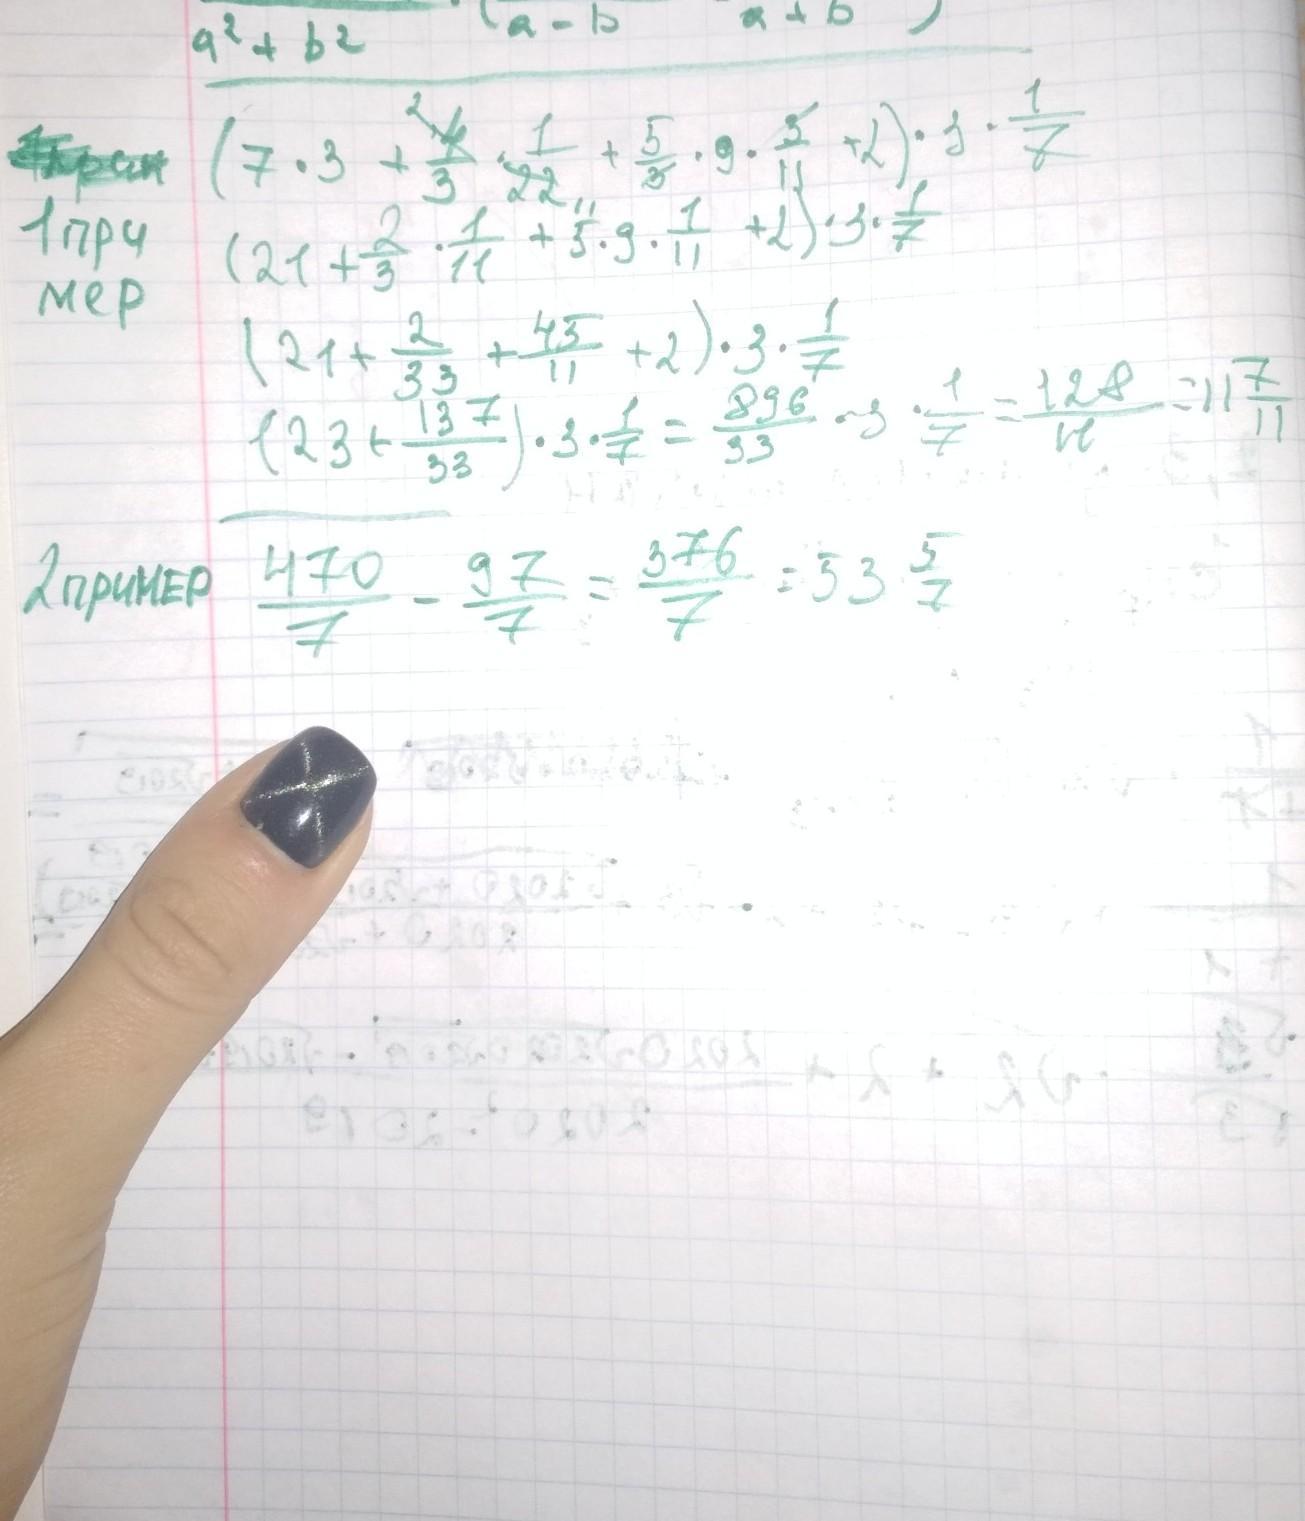 a² + b² (a - b a + b)
(7 · 3 + 4/3 · 1/22 + 5/3 · 9 · 3/11 + 2) · 3 · 1/7
1 при
мер
(21 + 2/3 · 1/11 + 5 · 9 · 1/11 + 2) · 3 · 1/7
(21 + 2/33 + 45/11 + 2) · 3 · 1/7
(23 + 137/33) · 3 · 1/7 = 896/33 · 3 · 1/7 = 128/11 = 11 7/11
2 ПРИМЕР 470/7 - 97/7 = 376/7 = 53 5/7